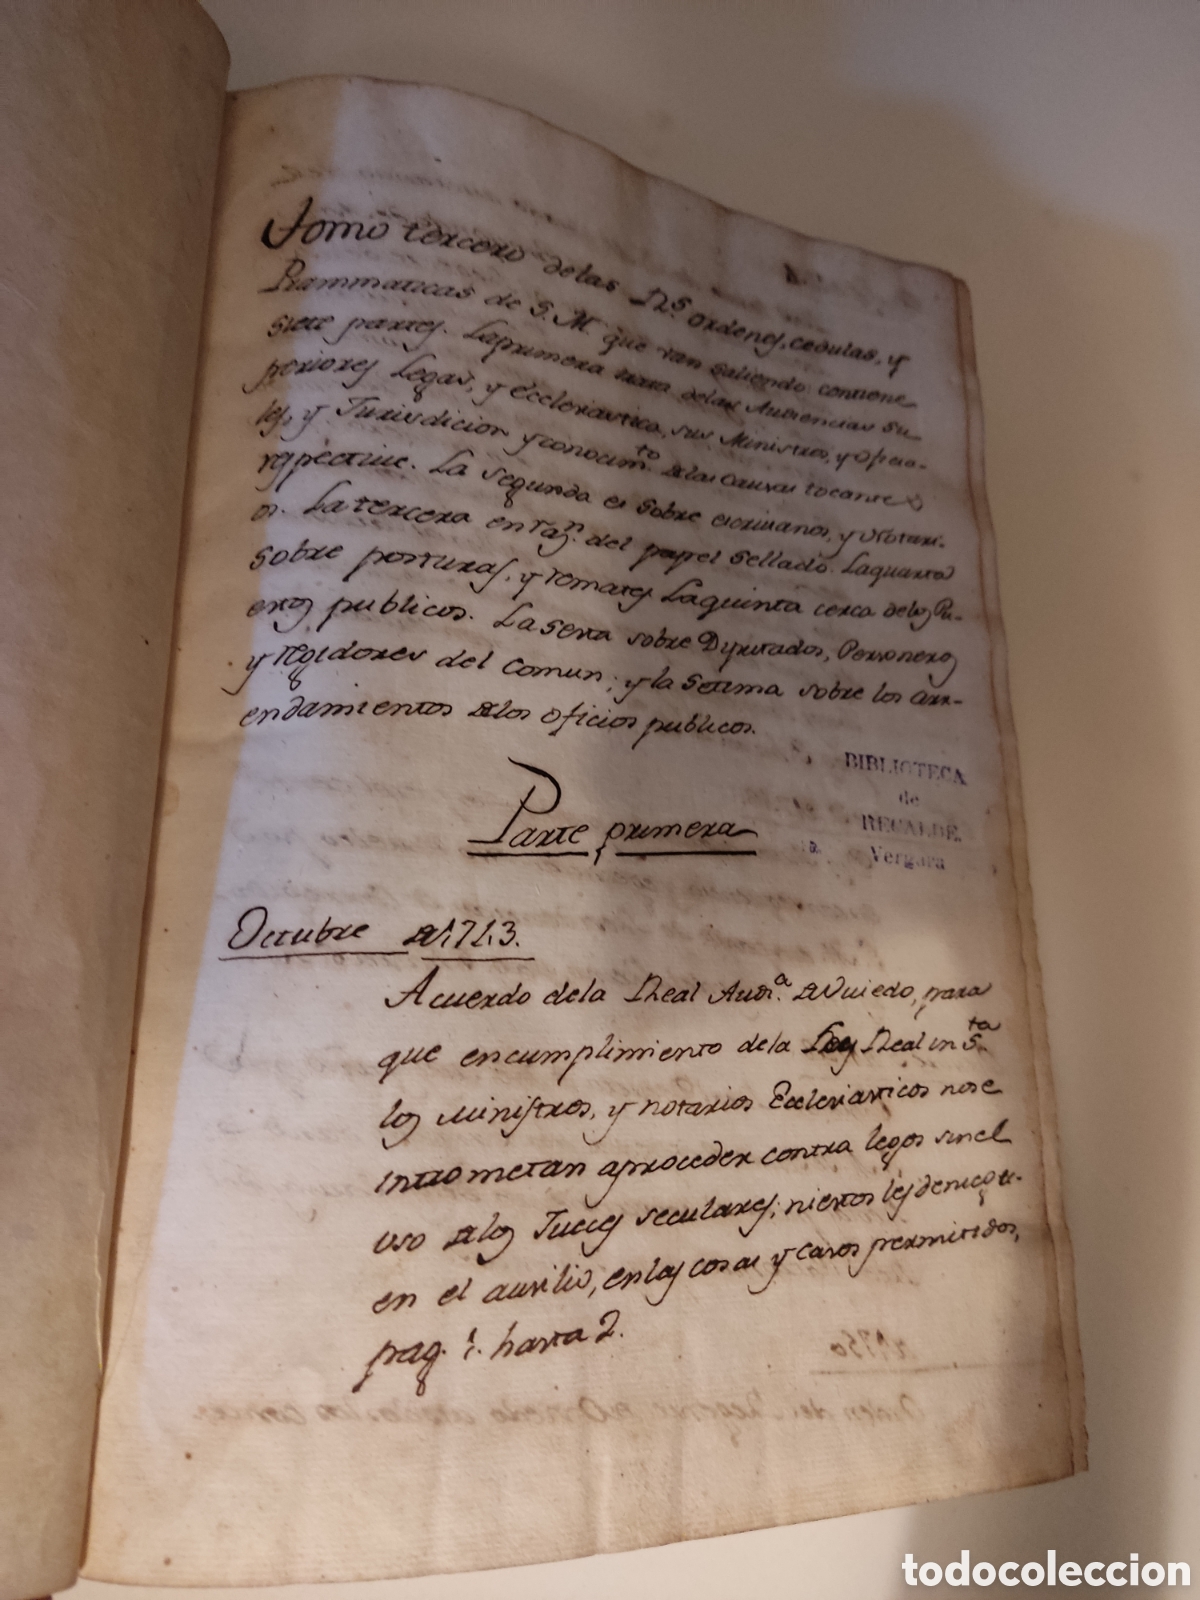 Tomo tercero de las Rs. ordenes, cedulas, y
Prammaticas de S. M. que van saliendo contiene
siete partes. La primera trata delas Audiencias Su-
periores Legas, y Ecclesiastica, sus Ministros, y oficia-
les, y Jurisdicion y conocimto. de las causas tocantes
respective. La segunda es sobre escrivanos, y Notari-
os. La tercera en razn. del papel sellado. La quarta
sobre posturas, y remates. La quinta cerca delos Pu-
ertos publicos. La sexta sobre Diputados, Personeros
y regidores del Comun; y la septima sobre los arr-
endamientos de los oficios publicos.
BIBLIOTECA
de
RECALDE.
Vergara
Parte primera
Octubre de 1713.
Acuerdo dela Real Auda. de Oviedo, para
que en cumplimiento dela Ley Real in Sta.
los Ministros, y notarios Ecclesiasticos no se
intrometan a proceder contra legos sin el
uso de los Jueces seculares; ni estos les denieg-
en el auxilio, en las cosas y casos permitidos,
pag. 1. hasta 2.
todocoleccion